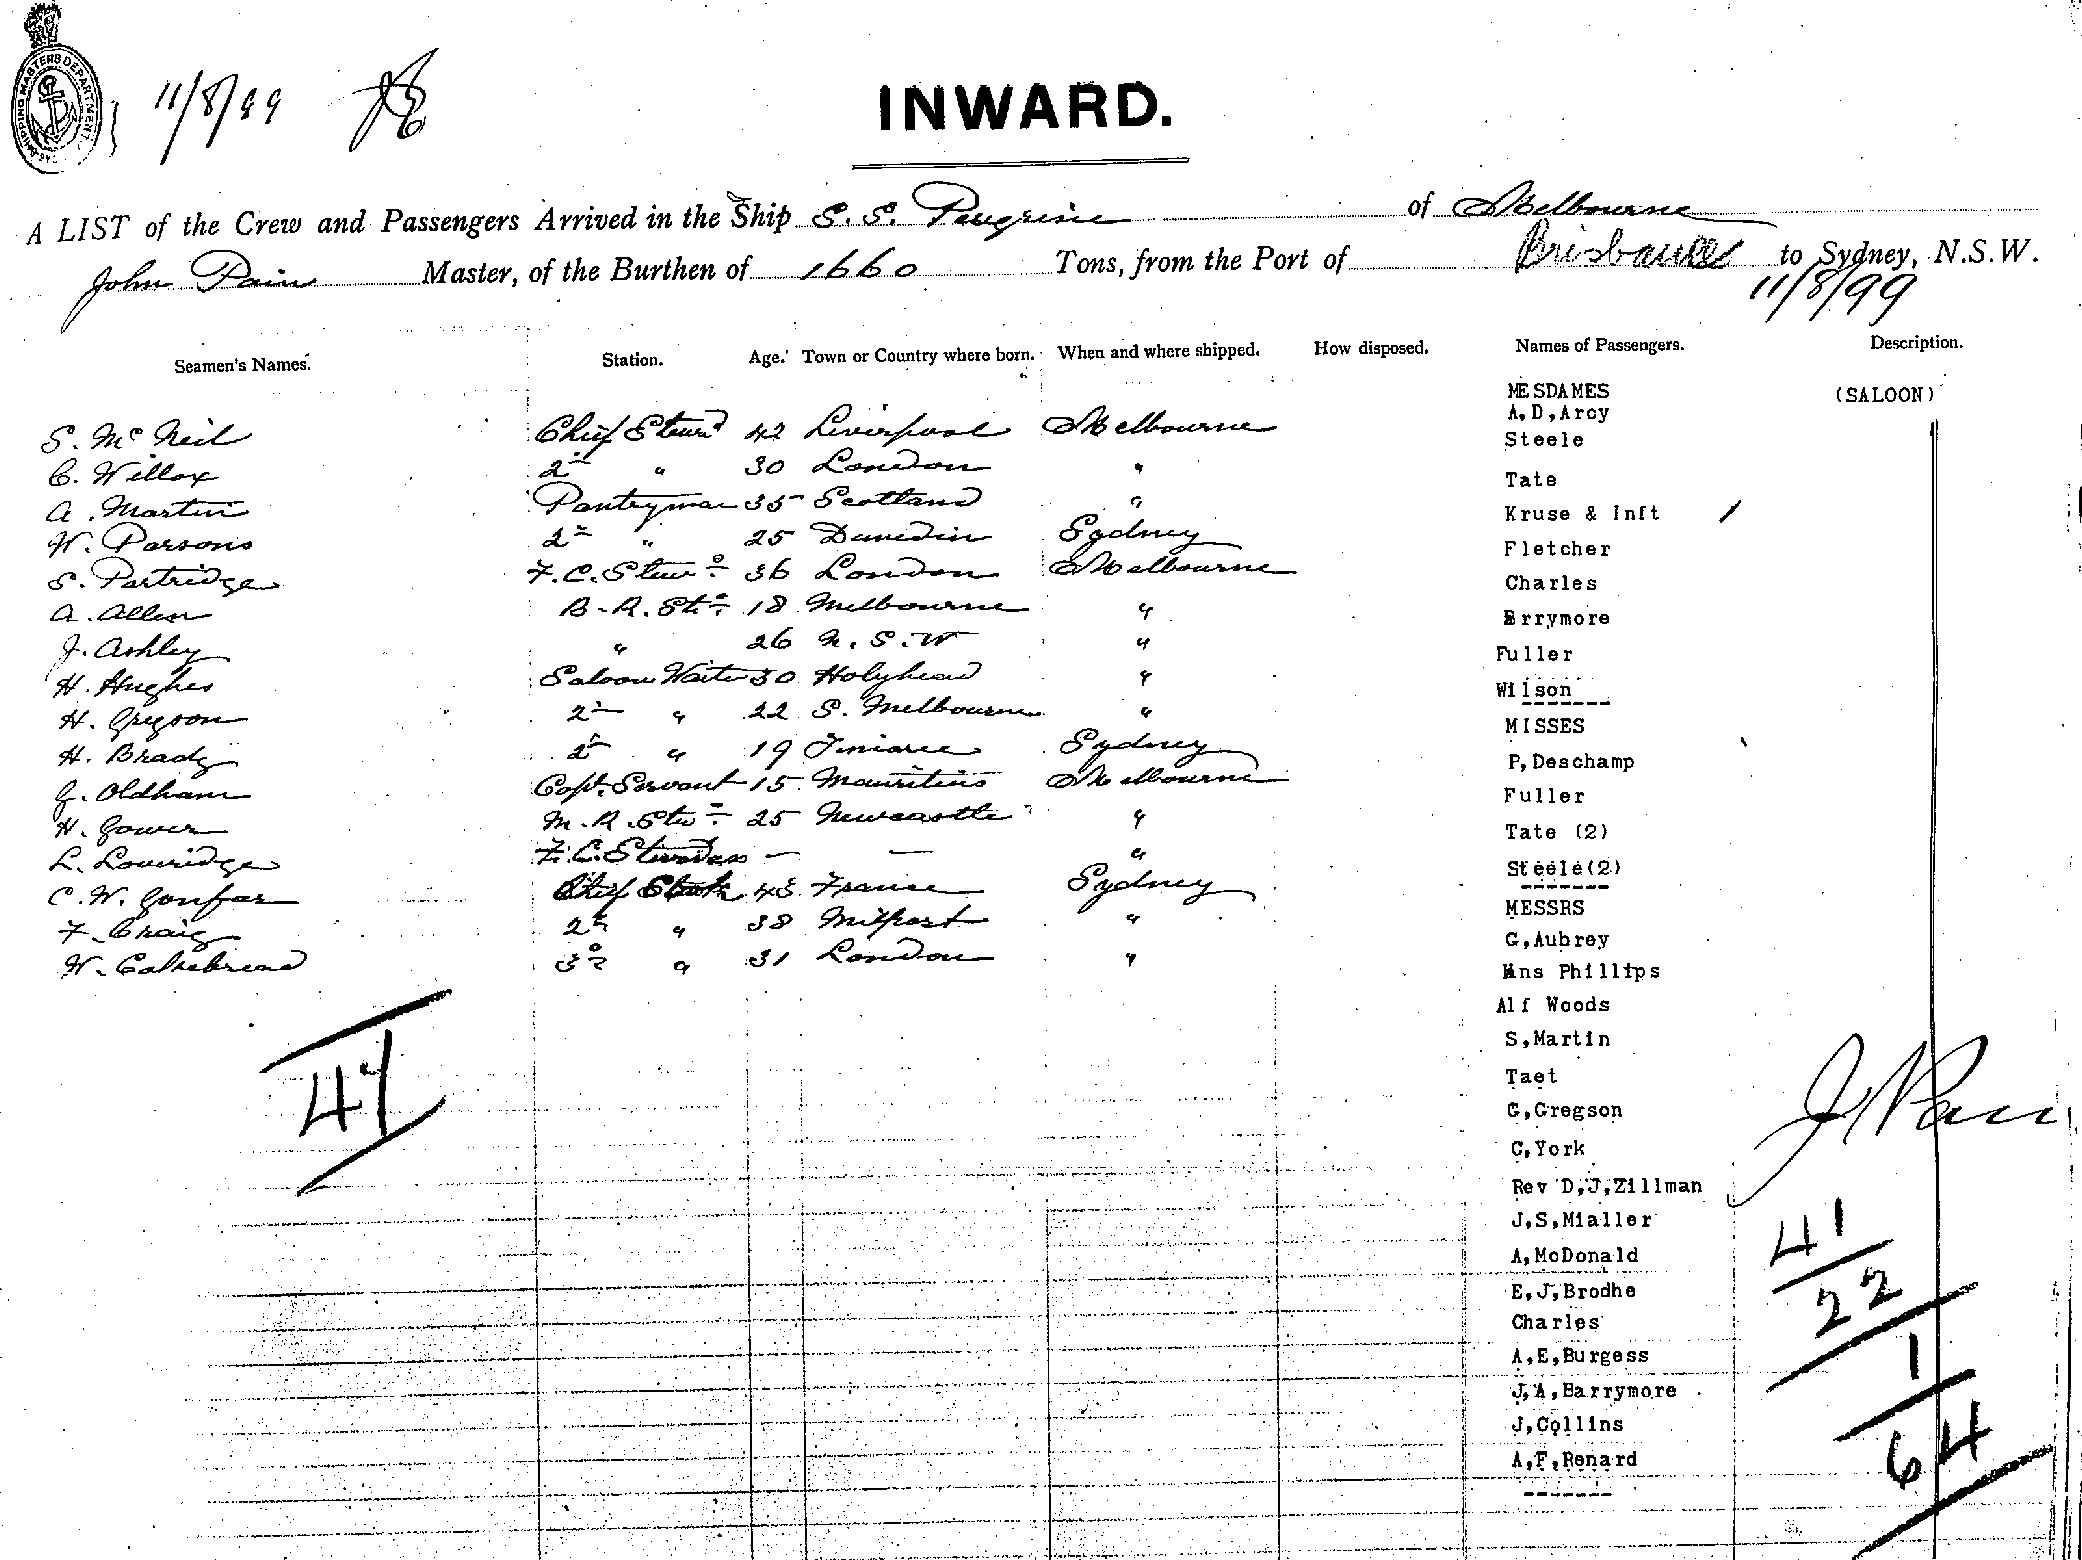 SHIPPING MASTERS DEPARTMENT
11/8/99
INWARD.
A LIST of the Crew and Passengers Arrived in the Ship S. S. Peregrine of Melbourne
John Pain Master, of the Burthen of 1660 Tons, from the Port of Brisbane to Sydney, N.S.W.
11/8/99
Seamen's Names. Station. Age. Town or Country where born. When and where shipped. How disposed. Names of Passengers. Description.
MESDAMES (SALOON)
A,D,Arcy
S. McNeil Chief Stewd 42 Liverpool Melbourne
Steele
C. Willox 2nd " 30 London "
Tate
A. Martin Pantryman 35 Scotland "
Kruse & Inft /
W. Parsons 2nd " 25 Dunedin Sydney
Fletcher
S. Partridge F.C. Stewd 36 London Melbourne
Charles
A. Allen B.R. Std 18 Melbourne "
Brrymore
J. Ashley " 26 N.S.W "
Fuller
H. Hughes Saloon Waiter 30 Holyhead "
Wilson
H. Gregson 2nd " 22 S. Melbourne "
MISSES
H. Brady 2nd " 19 Sydney
P,Deschamp
G. Oldham Capt. Servant 15 Mauritius Melbourne
Fuller
H. Gower M.R. Std 25 Newcastle "
Tate (2)
L. Loveridge F.C. Stewdess — — "
Steele(2)
C. W. Gonfar Chief Cook 43 France Sydney
MESSRS
F. Craig 2nd " 38 Milport "
G,Aubrey
W. Cakebread 3rd " 31 London "
Hns Phillips
Alf Woods
S,Martin
47
Taet
G,Gregson
J Pain
C,York
Rev D,J,Zillman
J,S,Mialler
41
A,McDonald
E,J,Brodhe
22
Charles
A,E,Burgess
1
J,A,Barrymore
J,Collins
64
A,F,Renard